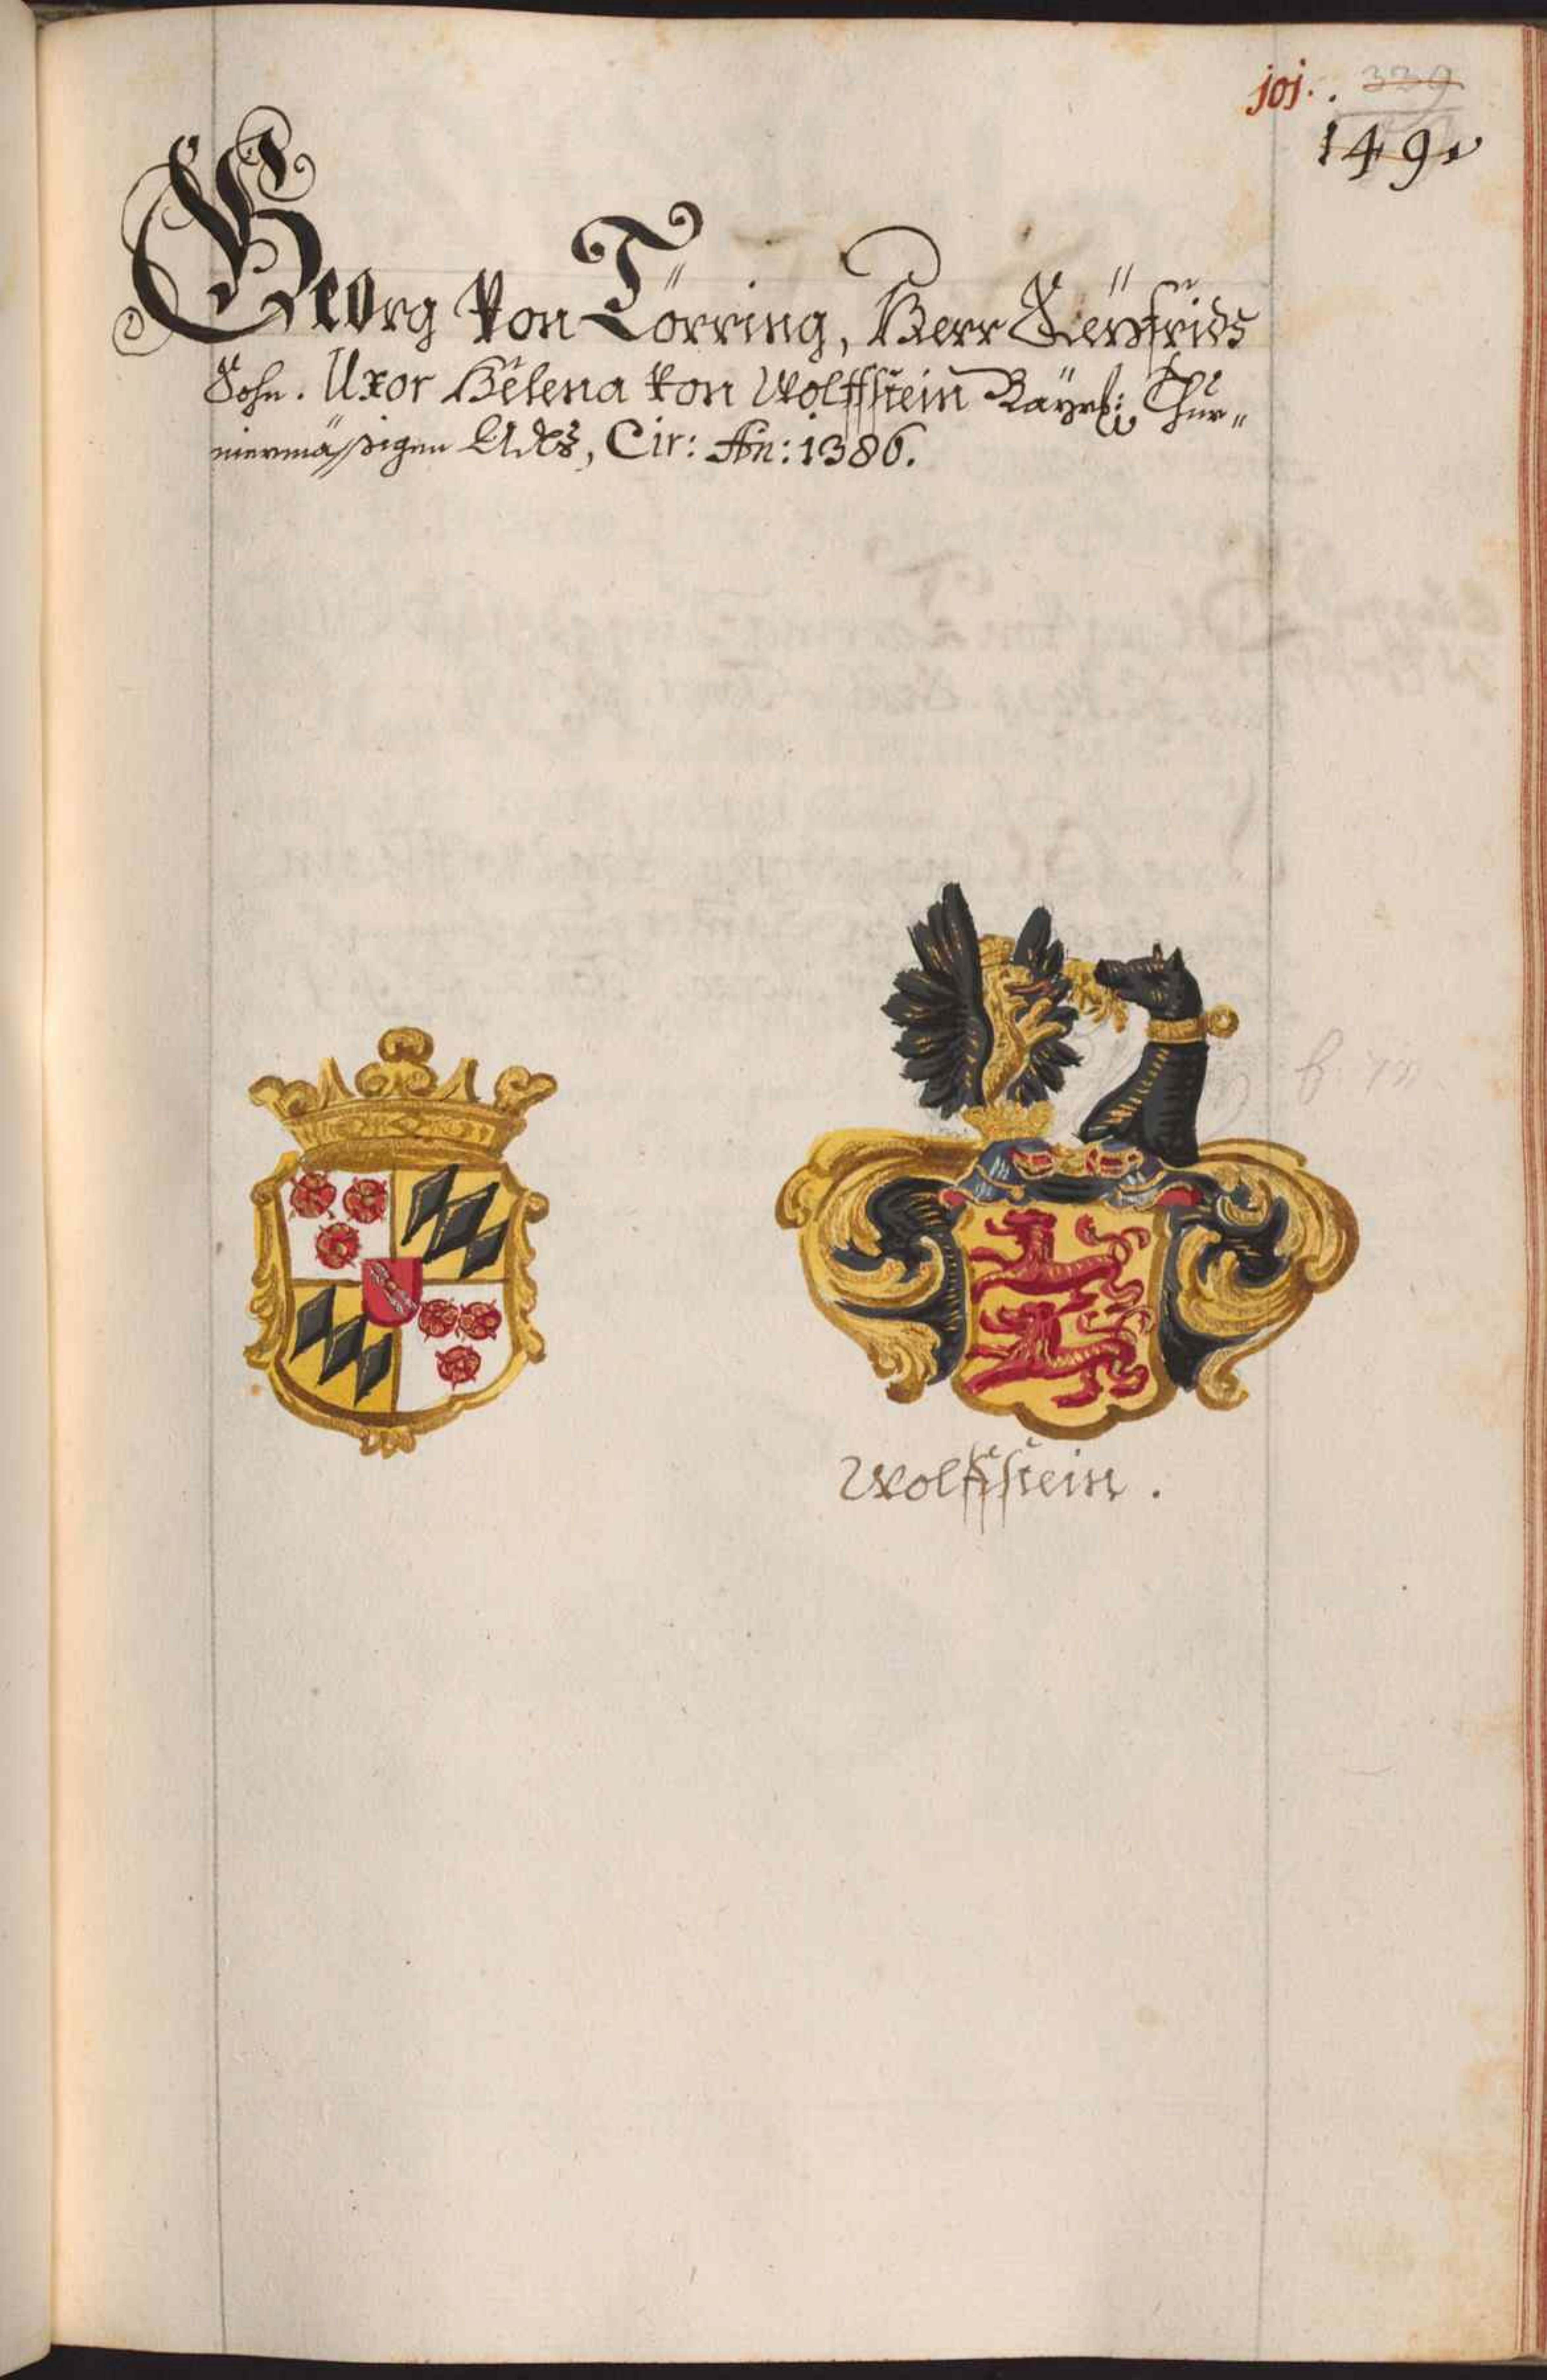 joj. . 339
149.
Georg von Törring, Herr Seÿfrids
Sohn. Uxor Helena von Wolffstein Bayrl: Thur„
niermässigen Adls, Cir: An: 1386.
Wolffstein.